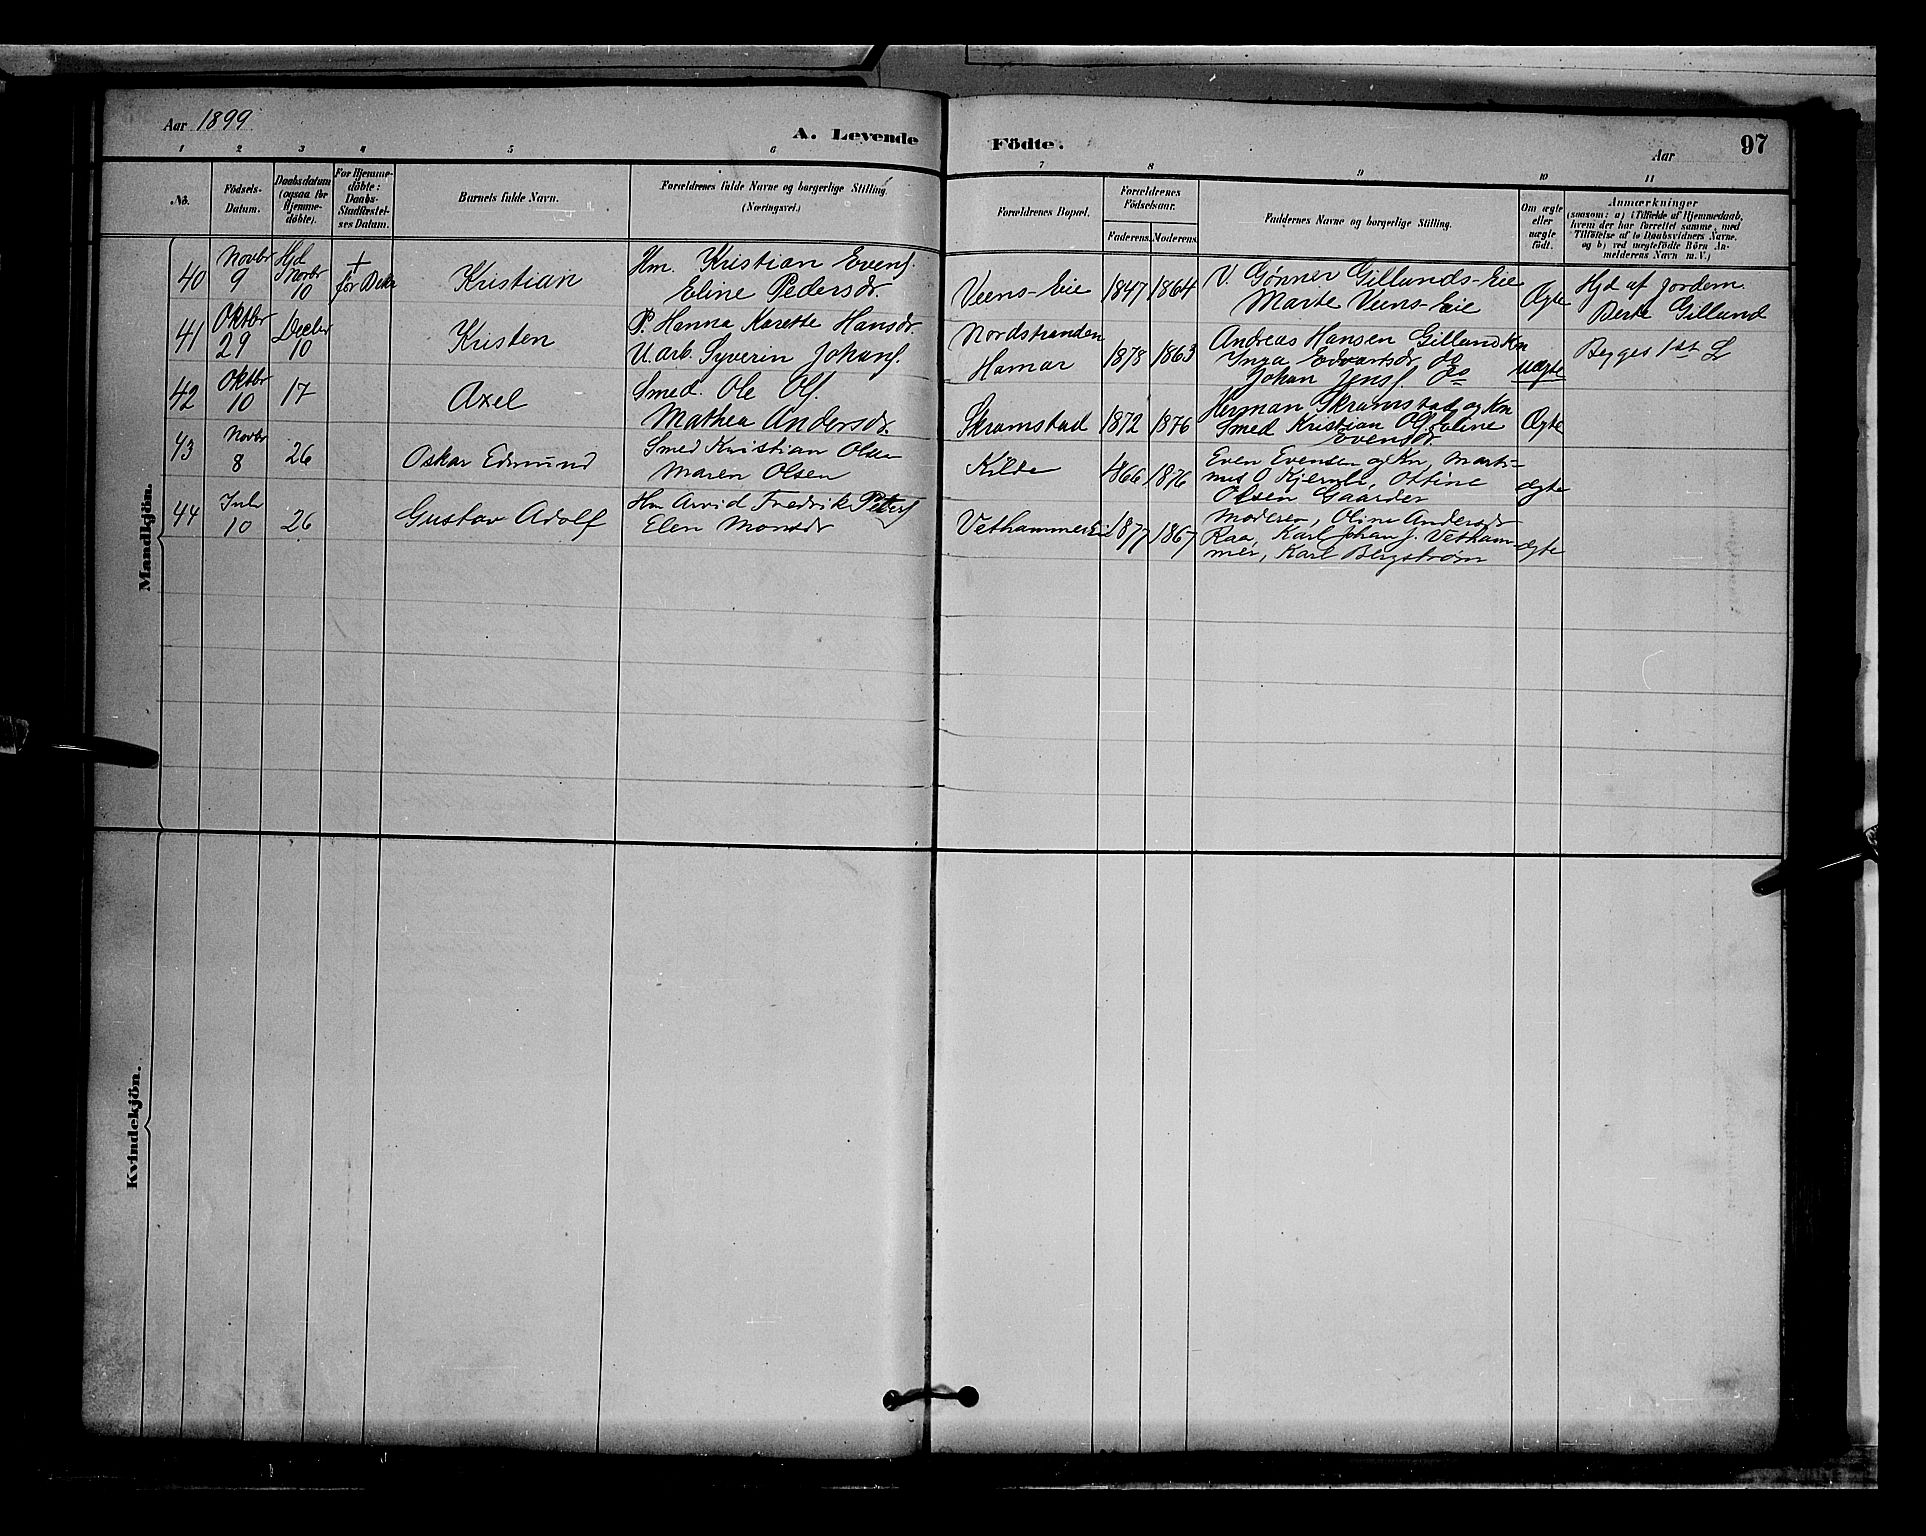 Aar 1899.
A. Levende Födte.
Aar
97
1 2 3 4 5 6 7 8 9 10 11
No.
Födsels-Datum.
Daabsdatum (ogsaa for Hjemme-döbte).
For Hjemme-döbte: Daabs-Stadfæstel-ses Datum.
Barnets fulde Navn.
Forældrenes fulde Navne og borgerlige Stilling. (Næringsvei.)
Forældrenes Bopæl.
Forældrenes Födselsaar.
Faderens. Moderens.
Faddernes Navne og borgerlige Stilling.
Om ægte eller uægte födt.
Anmærkninger
(saasom: a) i Tilfælde af Hjemmedaab, hvem der har forrettet samme, med Tilföielse af to Daabsvidners Navne, og b) ved uegtefödte Börn An-melderens Navn m.V.)
Mandkjön.
40 Novbr 9 Hjd Novbr 10 + før Kristian Hm. Kristian Evens. Eline Pedersdr. Veens-Eie 1847 1864 V. Gønner Gillunds-Eie Marte Veens-Eie Ægte Hjd af Jordem. Berte Gillund
41 Oktbr 29 Decbr 10 Kristen P. Hanna Karette Hansdr. U.arb. Syverin Johans. Nordstranden Hamar 1878 1863 Andreas Hansen Gillund Kn Inga Edvartsdr do Johan Jens. do uægte Begges 1st L
42 Oktbr 10 17 Axel Smed. Ole Ols. Mathea Andersdr. Skramstad 1872 1876 Herman Skramstad og Kn Smed Kristian Ols Eline Evensdr. Ægte
43 Novbr 8 26 Oskar Edmund Smed Kristian Olsen Maren Olsen Kilde 1866 1876 Even Evensen og Kn, Marti-nus O Kjernli, Ottine Olsen Gaarder ægte
44 Juli 10 26 Gustav Adolf Hm Arvid Fredrik Peters Elen Monsdr Vethammer 1877 1867 Moderen, Oline Andersdr Raa, Karl Johan J. Vetham-mer, Karl Bergstrøm ægte
Kvindekjön.